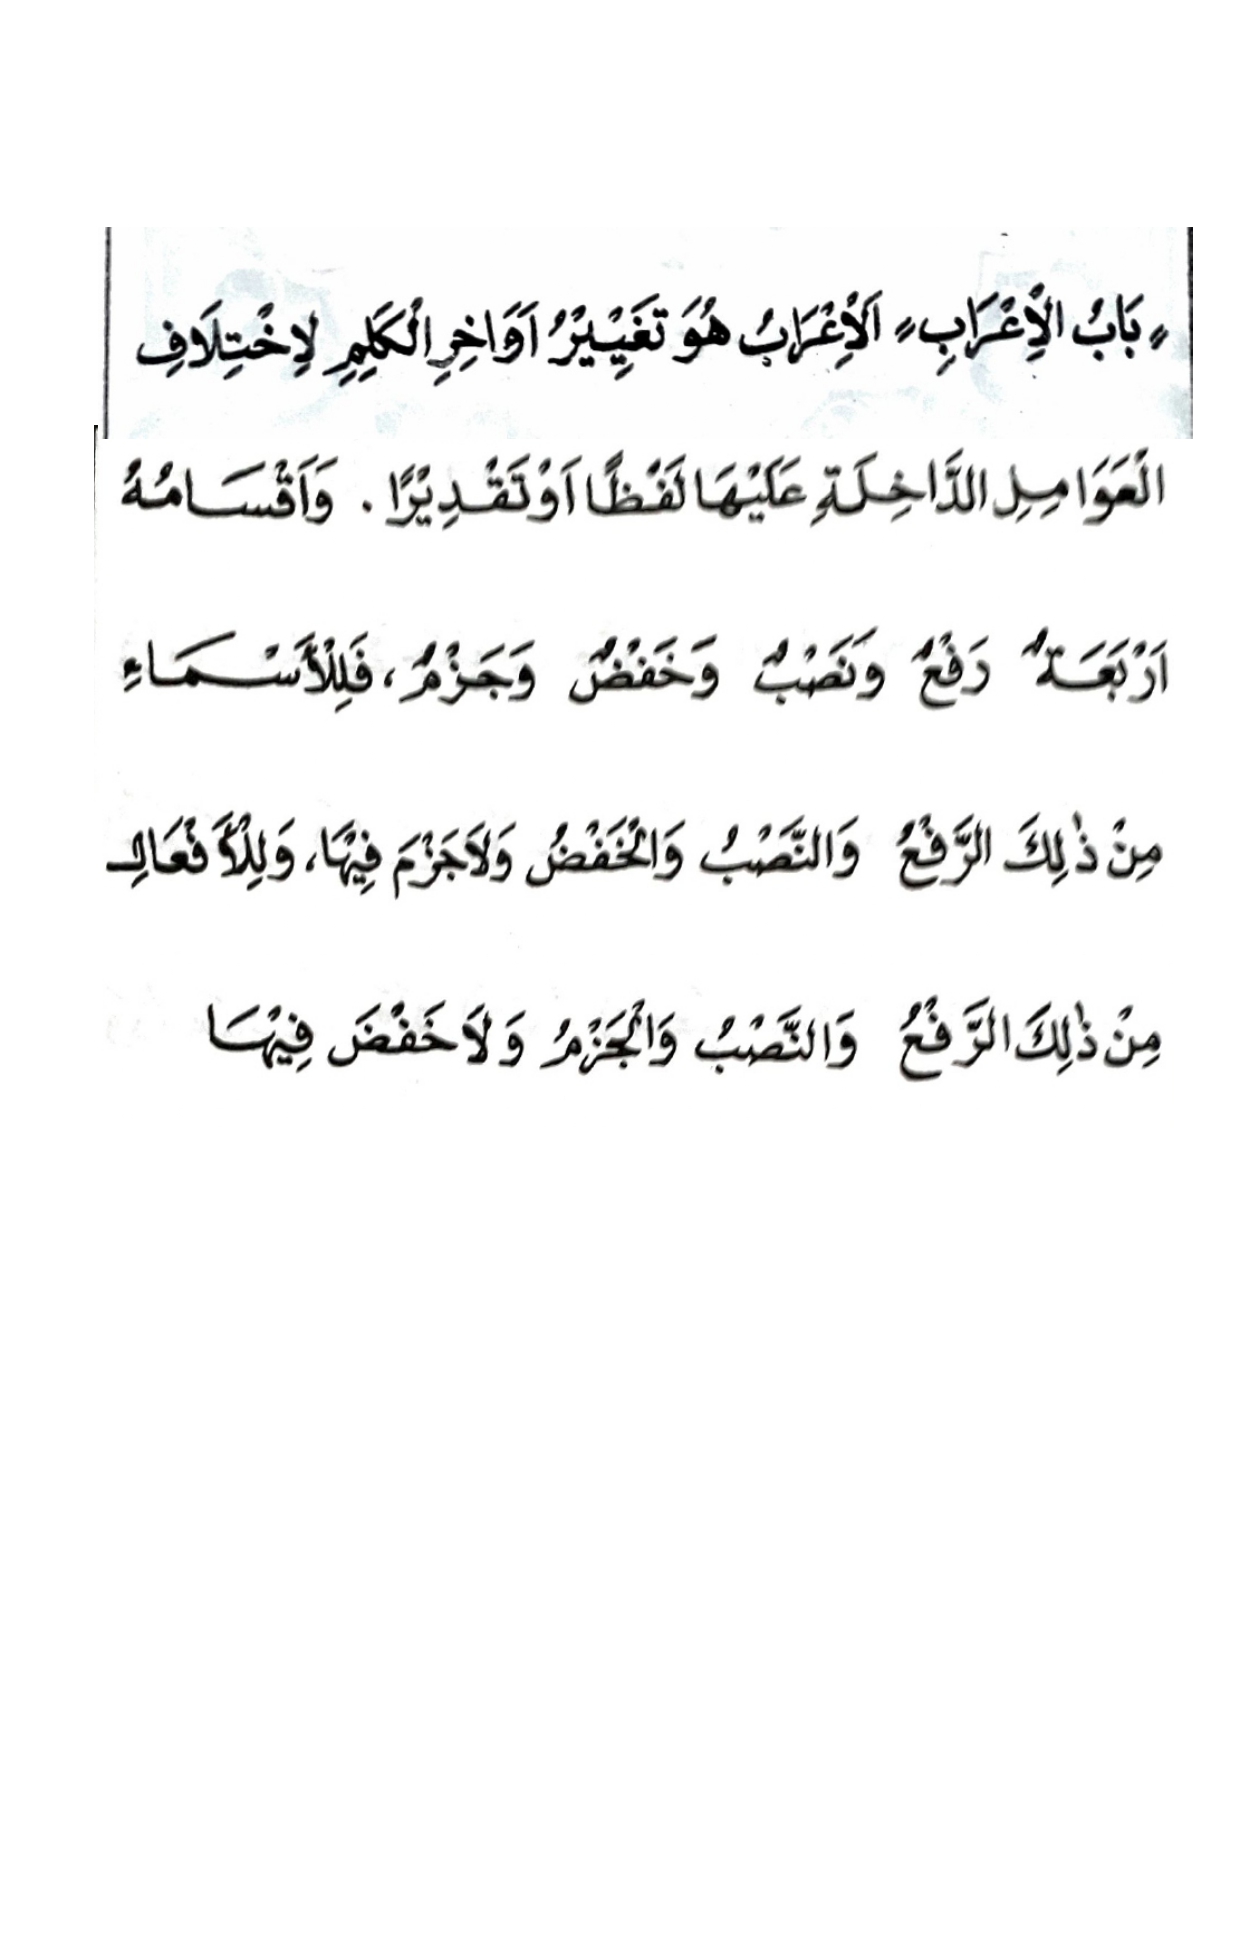 « بَابُ الْإِعْرَابِ » اَلْإِعْرَابُ هُوَ تَغْيِيْرُ اَوَاخِرِ الْكَلِمِ لِاخْتِلَافِ
الْعَوَامِلِ الدَّاخِلَةِ عَلَيْهَا لَفْظًا اَوْ تَقْدِيْرًا . وَاَقْسَامُهُ
اَرْبَعَةٌ رَفْعٌ وَنَصْبٌ وَخَفْضٌ وَجَزْمٌ ، فَلِلْأَسْمَاءِ
مِنْ ذٰلِكَ الرَّفْعُ وَالنَّصْبُ وَالْخَفْضُ وَلَا جَزْمَ فِيْهَا ، وَلِلْأَفْعَالِ
مِنْ ذٰلِكَ الرَّفْعُ وَالنَّصْبُ وَالْجَزْمُ وَلَا خَفْضَ فِيْهَا